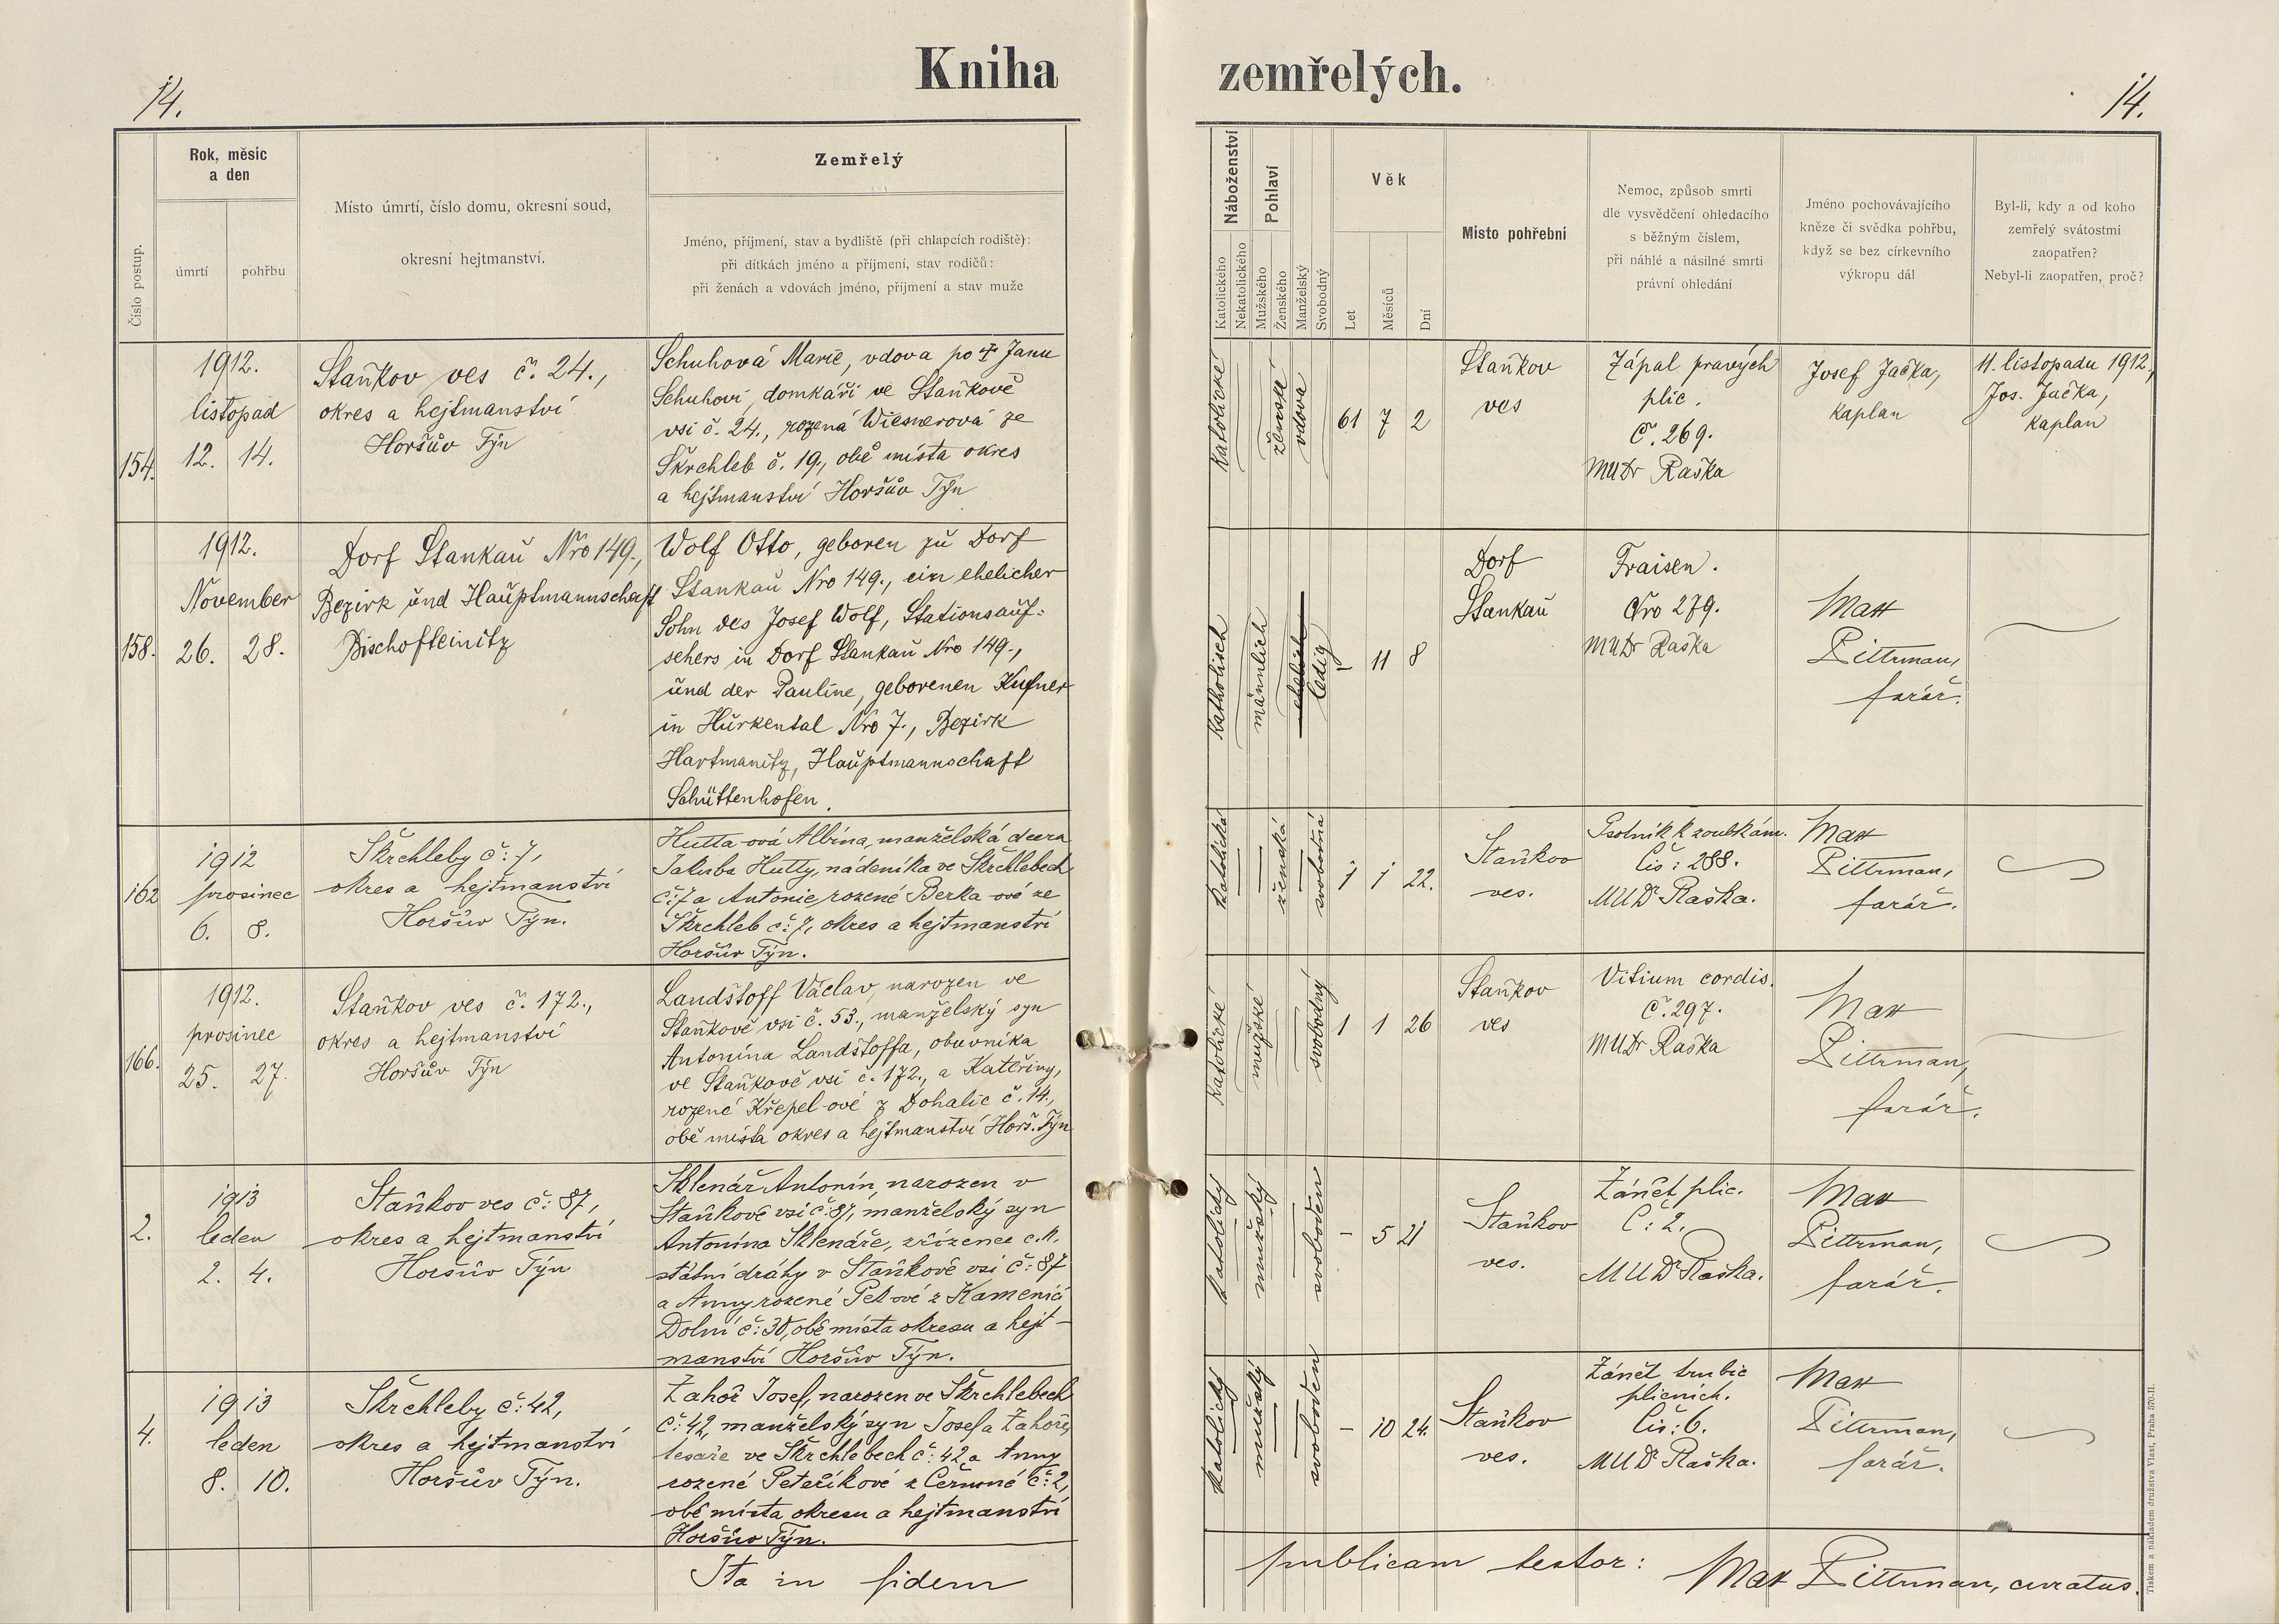 Kniha zemřelých.
14.
14.
Číslo postup.
Rok, měsíc
a den
úmrtí
pohřbu
Místo úmrtí, číslo domu, okresní soud,
okresní hejtmanství.
Zemřelý
Jméno, příjmení, stav a bydliště (při chlapcích rodiště):
při dítkách jméno a příjmení, stav rodičů:
při ženách a vdovách jméno, příjmení a stav muže
Náboženství
Katolického
Nekatolického
Pohlaví
Mužského
Ženského
Manželský
Svobodný
Věk
Let
Měsíců
Dní
Místo pohřební
Nemoc, způsob smrti
dle vysvědčení ohledacího
s běžným číslem,
při náhlé a násilné smrti
právní ohledání
Jméno pochovávajícího
kněze či svědka pohřbu,
když se bez církevního
výkropu dál
Byl-li, kdy a od koho
zemřelý svátostmi
zaopatřen?
Nebyl-li zaopatřen, proč?
154.
1912.
listopad
12. 14.
Staňkov ves č. 24.,
okres a hejtmanství
Horšův Týn
Schuhová Marie, vdova po † Janu
Schuhovi, domkáři ve Staňkově
vsi č. 24., rozená Wiesnerová ze
Škrchleb č. 19., obě místa okres
a hejtmanství Horšův Týn
Katolické
ženské
vdova
61 7 2
Staňkov
ves
Zápal pravých
plic.
č. 269.
MUDr Raška
Josef Jačka,
kaplan
11. listopadu 1912,
Jos. Jačka,
kaplan
158.
1912.
November
26. 28.
Dorf Stankau Nro 149.,
Bezirk und Hauptmannschaft
Bischofteinitz
Wolf Otto, geboren zu Dorf
Stankau Nro 149., ein ehelicher
Sohn des Josef Wolf, Stationsauf-
sehers in Dorf Stankau Nro 149.,
und der Pauline, geborenen Kufner
in Hurkental Nro 7., Bezirk
Hartmanitz, Hauptmannschaft
Schüttenhofen.
Katholisch
männlich
ehelich
ledig
– 11 8
Dorf
Stankau
Fraisen.
Nro 279.
MUDr Raška
Max
Pittrman,
farář.
162
1912
prosinec
6. 8.
Škrchleby č: 7,
okres a hejtmanství
Horšův Týn.
Hutta-ová Albina, manželská dcera
Jakuba Hutty, nádeníka ve Škrchlebech
č: 7 a Antonie, rozené Berka-ové ze
Škrchleb č: 7, okres a hejtmanství
Horšův Týn.
Katolická
ženská
svobodná
1 1 22.
Staňkov
ves.
Psotník k zoubkám.
Čís: 288.
MUDr Raška.
Max
Pittrman,
farář.
166.
1912.
prosinec
25. 27.
Staňkov ves č. 172.,
okres a hejtmanství
Horšův Týn
Landštoff Václav, narozen ve
Staňkově vsi č. 53., manželský syn
Antonína Landštoffa, obuvníka
ve Staňkově vsi č. 172., a Kateřiny,
rozené Křepel-ové z Dohalic č. 14.,
obě místa okres a hejtmanství Horš. Týn
Katolické
mužské
svobodný
1 1 26
Staňkov
ves
Vitium cordis.
č. 297.
MUDr Raška
Max
Pittrman,
farář.
2.
1913
leden
2. 4.
Staňkov ves č: 87,
okres a hejtmanství
Horšův Týn
Sklenář Antonín, narozen v
Staňkově vsi č: 87, manželský syn
Antonína Sklenáře, zřízence c.k.
státní dráhy v Staňkově vsi č: 87
a Anny rozené Pek-ové z Kamenic
Dolní č: 30, obě místa okresu a hejt-
manství Horšův Týn.
Katolický
mužský
svoboden
– 5 21
Staňkov
ves.
Zánět plic.
Č: 2.
MUDr Raška.
Max
Pittrman,
farář.
4.
1913
leden
8. 10.
Škrchleby č: 42,
okres a hejtmanství
Horšův Týn.
Zahoř Josef, narozen ve Škrchlebech
č: 42, manželský syn Josefa Zahoře,
tesaře ve Škrchlebech č: 42 a Anny
rozené Peteříkové z Černové č: 2,
obě místa okresu a hejtmanství
Horšův Týn.
Katolický
mužský
svoboden
– 10 24.
Staňkov
ves.
Zánět trubic
plicních.
Čís: 6.
MUDr Raška.
Max
Pittrman,
farář.
Ita in fidem publicam testor: Max Pittrman, curatus.
Tiskem a nákladem družstva Vlast, Praha 570-II.